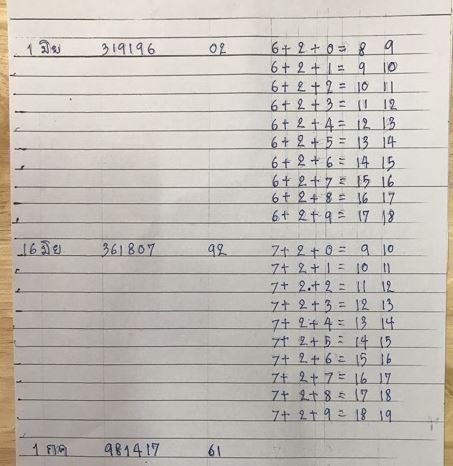 1 มิย 319196 02 6+2+0= 8 9
6+2+1= 9 10
6+2+2= 10 11
6+2+3= 11 12
6+2+4= 12 13
6+2+5= 13 14
6+2+6= 14 15
6+2+7= 15 16
6+2+8= 16 17
6+2+9= 17 18
16 มิย 361807 92 7+2+0= 9 10
7+2+1= 10 11
7+2+2= 11 12
7+2+3= 12 13
7+2+4= 13 14
7+2+5= 14 15
7+2+6= 15 16
7+2+7= 16 17
7+2+8= 17 18
7+2+9= 18 19
1 กค 981417 61